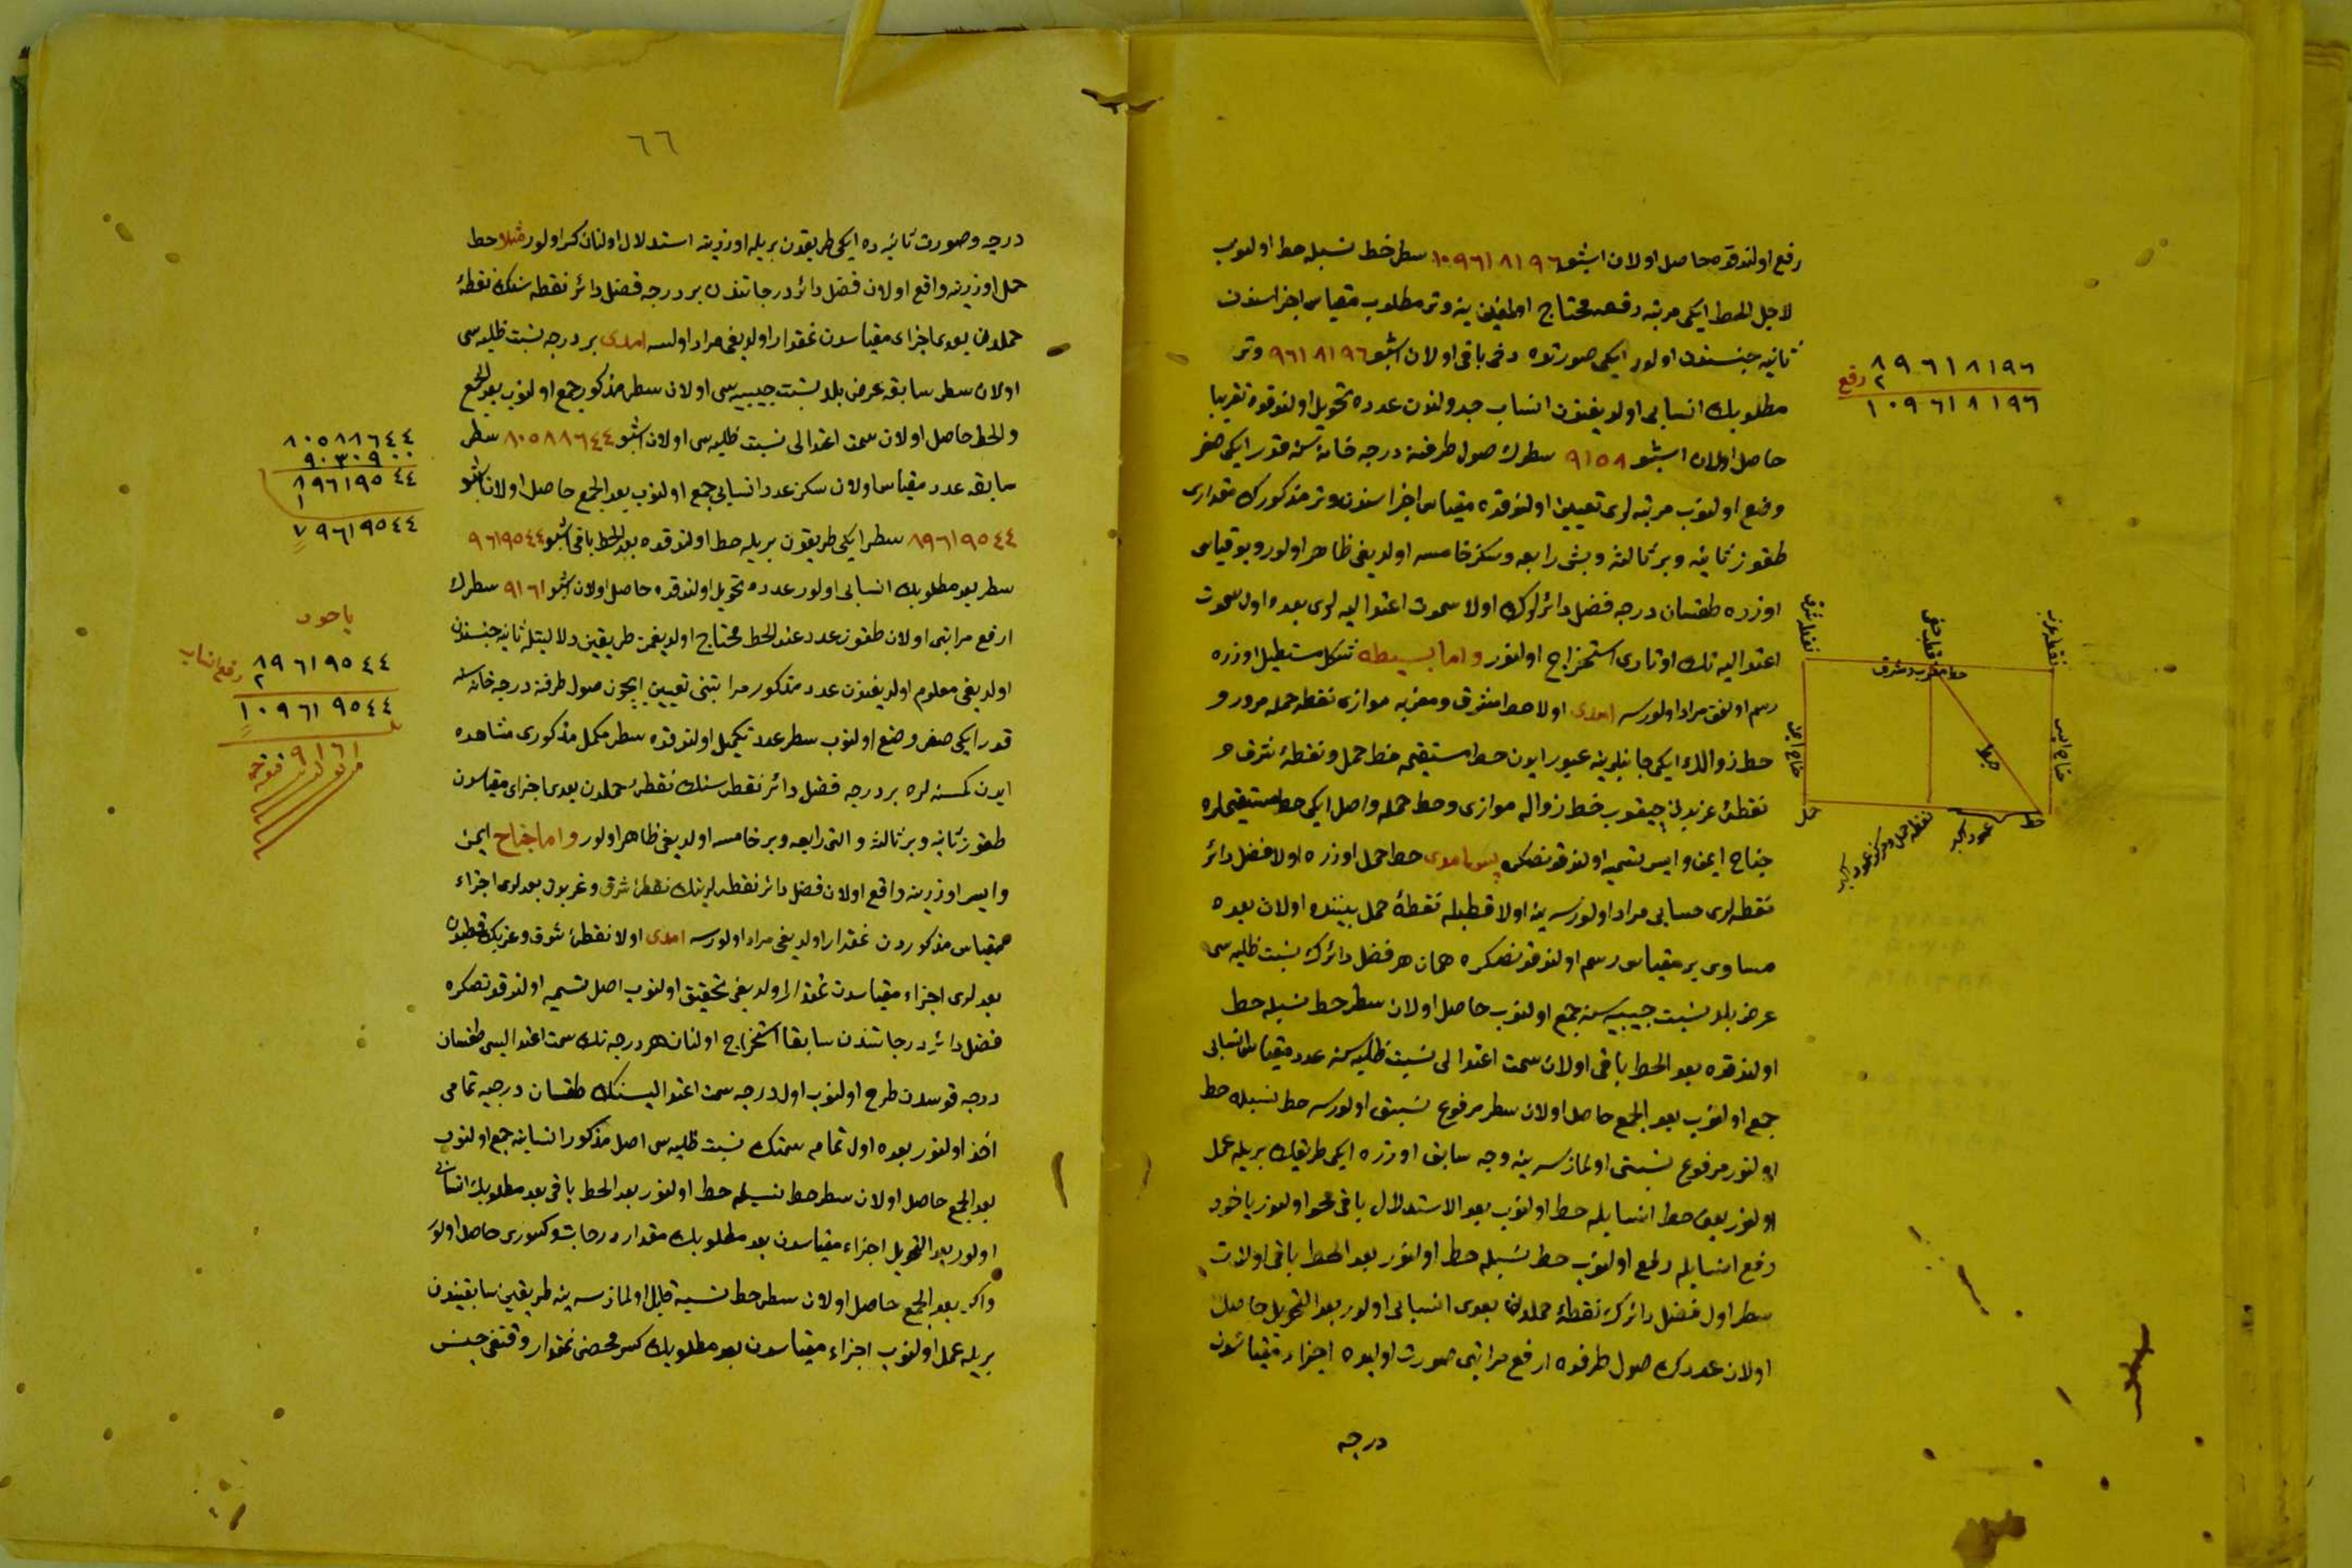 رفع اولندقده حاصل اولان اشبو ١٠٩٦١٨١٩٦ سطر خط نسبله حط اولنوب
لاجل الحط ايكى مرتبه رفعه محتاج اولديغين ينه وتر مطلوب مقياس اجزاسندن
ثانيه جنسندن اولور ايكى صورتده دخى باقى اولان اشبو ٩٦١٨١٩٦ وتر
مطلوبك انسابى اولديغندن انساب جدولندن عدده تحويل اولندقده تقريبا
حاصل اولان اشبو ٩١٥٨ سطرك صول طرفنه درجه خانه سنه قدر ايكى صفر
وضع اولنوب مرتبه لرى تعيين اولندقده مقياس اجزاسندن وتر مذكورك مقدارى
طقوز ثانيه وبر ثالثه وبش رابعه وسكز خامسه اولديغى ظاهر اولور وبو قياس
اوزره طقسان درجه فضل دائرلرك اولا سموت اعتداليه لرى بعده اول سموت
اعتداليه نك اوتادى استخراج اولنور واما بسيطه شكل مستطيل اوزره
رسم اولنمق مراد اولورسه امدى اولا خط مشرق ومغربه موازى نقطه حمله مرور و
خط زوالك ايكى جانبلرينه عبور ايدن خط مستقيمه خط حمل ونقطهٔ شرق و
نقطهٔ غربدن چيقوب خط زواله موازى وخط حمله واصل ايكى خط مستقيملره
جناح ايمن وايسر تسميه اولندقدنصكره پس امدى خط حمل اوزره اولا فضل دائر
نقطه لرى حسابى مراد اولورسه ينه اولا قطبله نقطهٔ حمل بيننده اولان بعده
مساوى بر مقياس رسم اولندقدنصكره همان هر فضل دائرك نسبت ظليه سى
عرض بلد نسبت جيبيه سنه جمع اولنوب حاصل اولان سطر حط نسبله حط
اولندقده بعد الحط باقى اولان سمت اعتدالى نسبت ظليه سنه عدد مقياس انسابى
جمع اولنوب بعد الجمع حاصل اولان سطر مرفوع نسبتى اولورسه حط نسبله حط
اولنور مرفوع نسبتى اولمازسه ينه وجه سابق اوزره ايكى طريقك بريله عمل
اولنور يعنى حط انسابله حط اولنوب بعد الاستدلال باقى محو اولنور ياخود
رفع انسابله رفع اولنوب حط نسبله حط اولنور بعد الحط باقى اولان
سطر اول فضل دائرك نقطهٔ حملدن بعدى انسابى اولور بعد التحويل حاصل
اولان عددك صول طرفده ارفع مراتبى صورت اوليده اجزاء مقياسدن
درجه
٨٩٦١٨١٩٦
٢ رفع
١٠٩٦١٨١٩٦
نقطه شرق
قطب خفى
نقطه غرب
خط مغرب ومشرق
جناح ايمن
جناح ايسر
حمل
نقطه حمل ومركز عمود اكبر
عمود اكبر
٦٦
درجه وصورت ثانيه ده ايكى طريقدن بريله اوزرينه استدلال اولنان كسر اولور مثلا خط
حمل اوزرينه واقع اولان فضل دائر درجاتندن بر درجه فضل دائر نقطه سنك نقطهٔ
حملدن بعدى اجزاى مقياسدن نمقدار اولديغى مراد اولنسه امدى بر درجه نسبت ظليه سى
اولان سطر سابقه عرض بلد نسبت جيبيه سى اولان سطر مذكور جمع اولنوب بعد الجمع
والحط حاصل اولان سمت اعتدالى نسبت ظليه سى اولان اشبو ٨٠٥٨٨٦٤٤ سطر
سابقه عدد مقياس اولان سكز عدد انسابى جمع اولنوب بعد الجمع حاصل اولان اشبو
٨٩٦١٩٥٤٤ سطر ايكى طريقدن بريله حط اولندقده بعد الحط باقى اشبو ٩٦١٩٥٤٤
سطر بعد مطلوبك انسابى اولور عدده تحويل اولندقده حاصل اولان اشبو ٩١٦١ سطرك
ارفع مراتبى اولان طقوز عدد عند الحط محتاج اولديغى طريقين دلالتيله ثانيه جنسندن
اولديغى معلوم اولديغندن عدد مذكور مراتبنى تعيين ايچون صول طرفنه درجه خانه سنه
قدر ايكى صفر وضع اولنوب سطر عدد تكميل اولندقده سطر مكمل مذكورى مشاهده
ايدن كمسنه لره بر درجه فضل دائر نقطه سنك نقطهٔ حملدن بعدى اجزاى مقياسدن
طقوز ثانيه وبر ثالثه والتى رابعه وبر خامسه اولديغى ظاهر اولور واما جناح ايمن
وايسر اوزرينه واقع اولان فضل دائر نقطه لرينك نقطهٔ شرق وغربدن بعدلرى اجزاء
مقياس مذكوردن نمقدار اولديغى مراد اولورسه امدى اولا نقطهٔ شرق وغربك قطبدن
بعدلرى اجزاء مقياسدن نمقدار اولديغى تحقيق اولنوب اصل تسميه اولندقدنصكره
فضل دائر درجاتندن سابقا استخراج اولنان هر درجه نك سمت اعتداليسى طقسان
درجه قوسدن طرح اولنوب اول درجه سمت اعتداليسنك طقسان درجيه تمامى
اخذ اولنور بعده اول تمام سمتك نسبت ظليه سى اصل مذكور انسابنه جمع اولنوب
بعد الجمع حاصل اولان سطر حط نسبله حط اولنور بعد الحط باقى بعد مطلوبك انسابى
اولور بعد التحويل اجزاء مقياسدن بعد مطلوبك مقدار درجات وكسورى حاصل اولور
واكر بعد الجمع حاصل اولان سطر حط نسبه قابل اولمازسه ينه طريقين سابقيندن
بريله عمل اولنوب اجزاء مقياسدن بعد مطلوبك كسر محضى نمقدار وقنغى جنس
٨٠٥٨٨٦٤٤
٩٠٣٠٩٠٠
٨٩٦١٩٥٤٤
١
٧٩٦١٩٥٤٤
ياخود
٨٩٦١٩٥٤٤
٢ رفع انساب
١٠٩٦١٩٥٤٤
٩١٦١